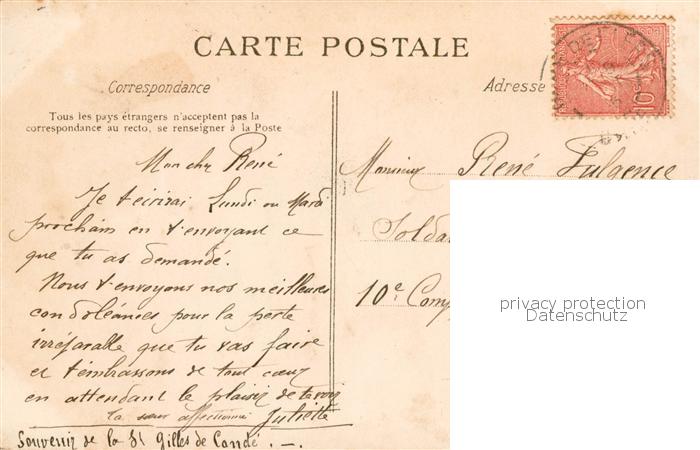 CARTE POSTALE
Correspondance
Adresse
Tous les pays étrangers n'acceptent pas la
correspondance au recto, se renseigner à la Poste
Mon cher René
Je t'écrirai Lundi ou Mardi
prochain en t'envoyant ce
que tu as demandé.
Nous t'envoyons nos meilleures
condoléances pour la perte
irréparable que tu vas faire
et t'embrassons de tout cœur
en attendant le plaisir de te voir
ta sœur affectionnée Juliette
Souvenir de la St Gilles de Condé. —.
Monsieur René Fulgence
Solda
10e Comp
10c
privacy protection
Datenschutz